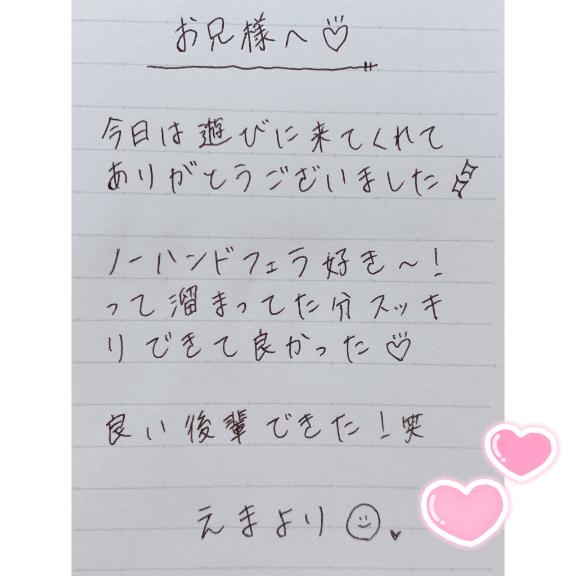 お兄様へ♡
今日は遊びに来てくれて
ありがとうございました
ノーハンドフェラ好き〜!
って溜まってた分スッキ
リできて良かった♡
良い後輩できた!笑
えまより